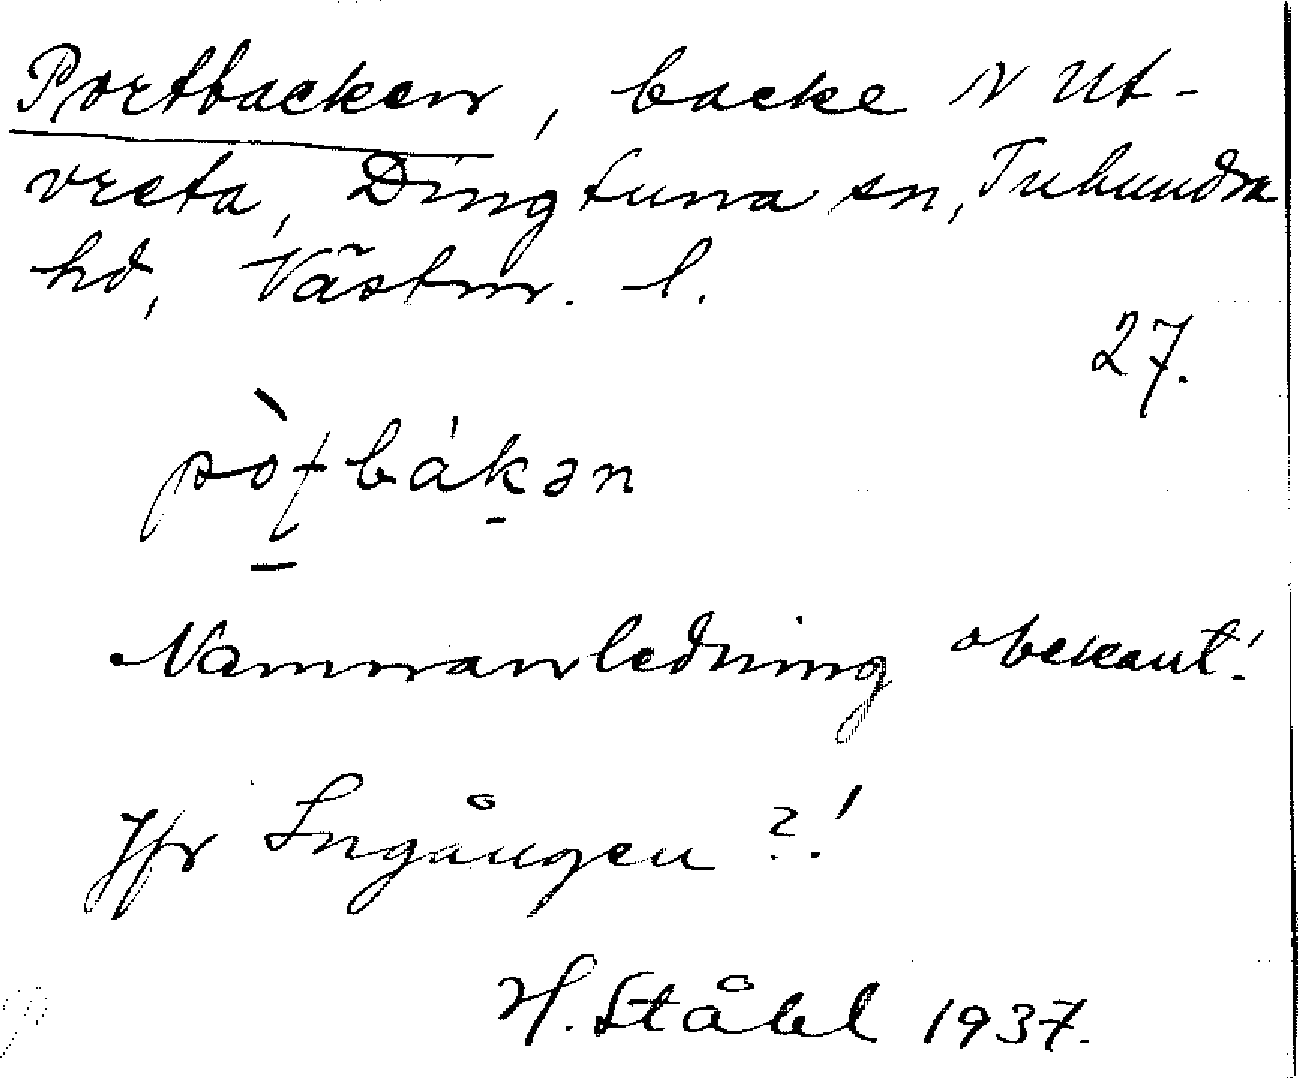 Portbacken, backe N Ut-
vreta, Dingtuna sn, Tuhundra
hd, Västm. l.
27.
pòţbákən
Namnanledning obekant!
Jfr Ingången?!
H. Ståhl 1937.